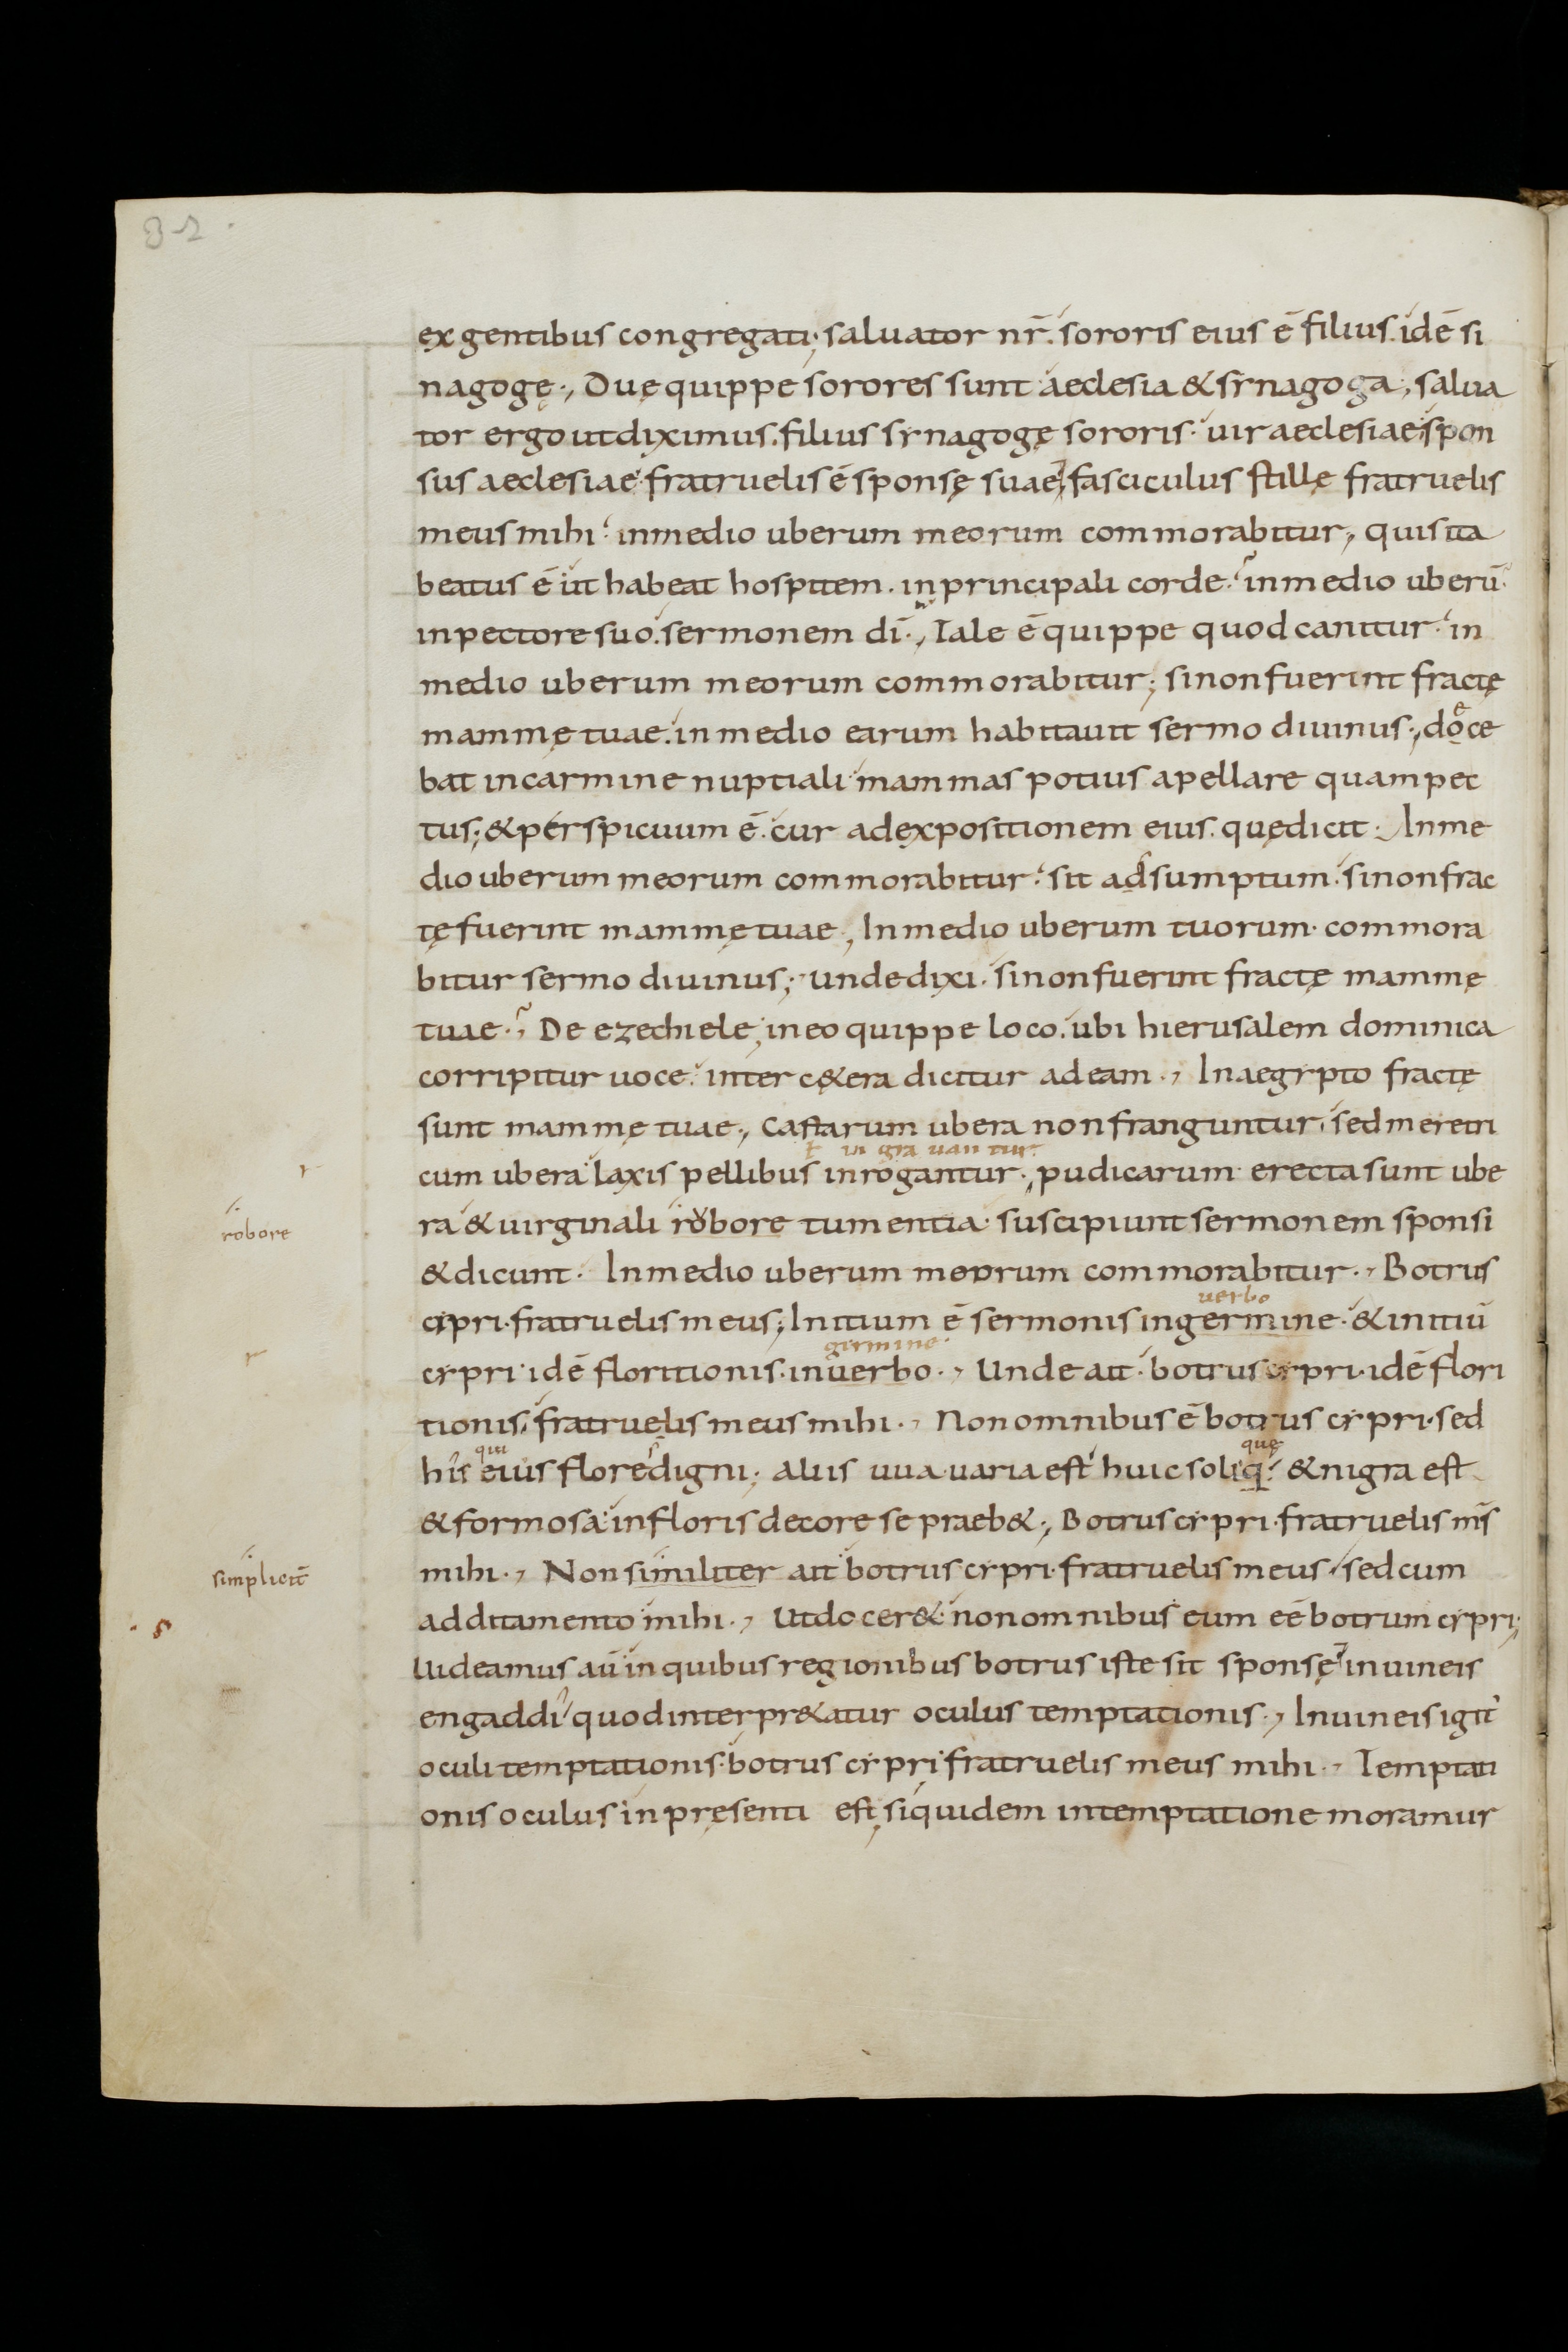 82.
ex gentibus congregati; saluator nr̄. sororis eius ē filius. idē si
nagogę., Duę quippe sorores sunt aeclesia & synagoga, salua
tor ergo ut diximus. filius synagogę sororis. uir aeclesiae. spon
sus aeclesiae fratruelis ē sponsę suae; fasciculus stillę fratruelis
meus mihi. in medio uberum meorum commorabitur, quis ita
beatus ē ut habeat hospitem. in principali corde. in medio uberū.
in pectore suo. sermonem dī., Tale ē quippe quod canitur. in
medio uberum meorum commorabitur; si non fuerint fractę
mammę tuae. in medio earum habitauit sermo diuinus., doce
e
bat in carmine nuptiali mammas potius apellare quam pec
tus; & perspicuum ē. cur ad expositionem eius. quę dicit. In me
dio uberum meorum commorabitur. sit adsumptum. si non frac
tę fuerint mammę tuae, In medio uberum tuorum. commora
bitur sermo diuinus; unde dixi. si non fuerint fractę mammę
tuae., De ezechiele, in eo quippe loco. ubi hierusalem dominica
corripitur uoce. inter c&era dicitur ad eam., In aegypto fractę
sunt mammę tuae., Castarum ubera non franguntur, sed meretri
ł in gra uan tur.
cum ubera laxis pellibus inrogantur., pudicarum erecta sunt ube
r
ra & uirginali robore tumentia. suscipiunt sermonem sponsi
robore
& dicunt. In medio uberum meorum commorabitur., Botrus
uerbo
cipri. fratruelis meus; Initium ē sermonis in germine. & initiū
germine.
r
cypri idē floritionis. in uerbo., Unde ait. botrus cypri. idē flori
tionis, fratruelis meus mihi., Non omnibus ē botrus cypri. sed
qui
quę
his eius flore digni; aliis uua uaria est huic soli q; & nigra est
& formosa in floris decore se praeb&., Botrus cypri. fratruelis m̄s
mihi., Non similiter ait botrus cypri. fratruelis meus, sed cum
simplicit̄
additamento mihi., Ut docer& non omnibus eum eē botrum cypri;
. s
Uideamus aū in quibus regionibus botrus iste sit sponsę in uineis
engaddi quod interpr&atur oculus temptationis., In uineis igit'
oculi temptationis. botrus cypri fratruelis meus mihi., Temptati
onis oculus in pręsenti est, siquidem in temptatione moramur